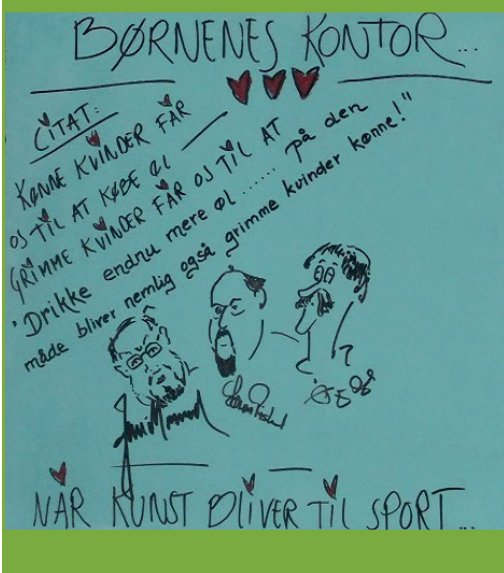 BØRNENES KONTOR...
CITAT:
KØNNE KVINDER FÅR
OS TIL AT KØBE ØL
GRIMME KVINDER FÅR OS TIL AT
"Drikke endnu mere øl ...... på den
måde bliver nemlig også grimme kvinder kønne!"
NÅR KUNST BLIVER TIL SPORT...